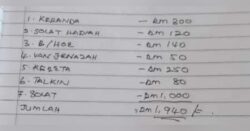 1. KERANDA — RM 300
2. SOLAT HADIAH — RM 120
3. B/HOR — RM 140
4. VAN JENAZAH — RM 50
5. KERETA — RM 250
6. TALKIN — RM 80
7. SOLAT — RM 1,000
JUMLAH — RM 1,940/=